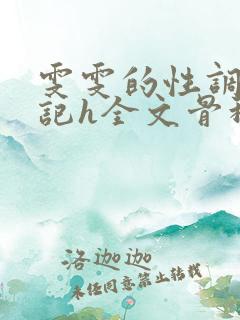 雯雯的性調
記h全文骨科
洛迦迦
未任同意禁止转载